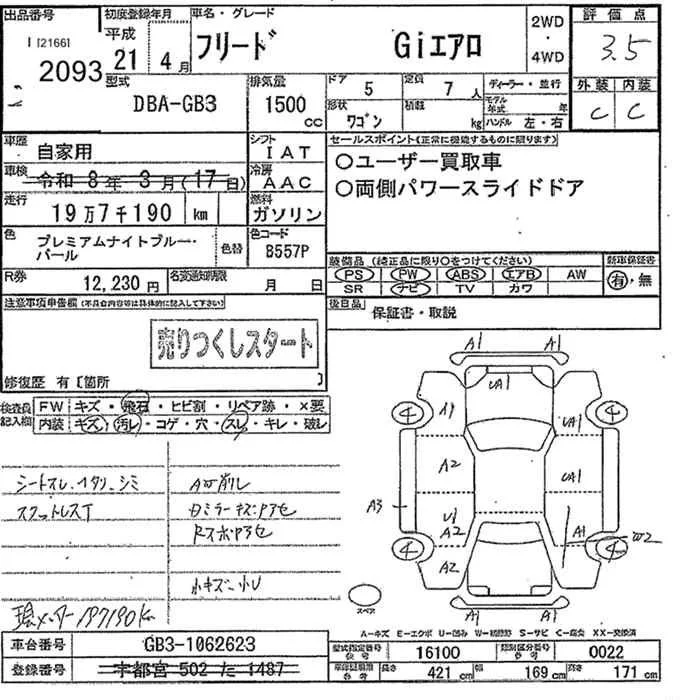 出品番号 初度登録年月 車名・グレード 2WD 評価点
I I21661 平成 フリード Giエアロ ・ 3.5
2093 21年 4月 4WD 外装 内装
型式 排気量 ドア 定員 ディーラー・並行 C C
DBA-GB3 1500cc 5 7人 モデル年式 年
形状 ワゴン 積載 kg ハンドル 左・右
車歴 自家用 シフト IAT セールスポイント(正常に機能するものに限ります)
車検 令和 8年 3月(17日) 冷房 AAC ○ユーザー買取車
走行 19万7千190 km 燃料 ガソリン ○両側パワースライドドア
色 プレミアムナイトブルー・パール 色替 色コード B557P
装備品 (純正品に限り○をつけてください) 新車保証書
PS PW ABS エアB AW 有・無
SR ナビ TV カワ
R券 12,230円 名変通知期限 月 日
後日品 保証書・取説
注意事項申告欄(不具合内容等は具体的に記入して下さい)
売りつくしスタート
修復歴 有 [箇所 ]
検査員記入欄 FW キズ・飛石・ヒビ割・リペア跡・×要
内装 キズ・汚レ・コゲ・穴・スレ・キレ・破レ
シートスレ、イタリ、シミ
小キズ、小U
現メーター 197190km
A1 A1
UA1
4 A1 UA1 4
A2 UA1
A3
U1
A2 A1 W2
4 A2 4
A1 A1
スペア
A-キズ E-エクボ U-凹み W-補修跡 S-サビ C-腐食 XX-交換済
車台番号 GB3-1062623 型式指定番号 16100 類別区分番号 0022
登録番号 宇都宮 502 た 1487 長さ 421cm 幅 169cm 高さ 171cm